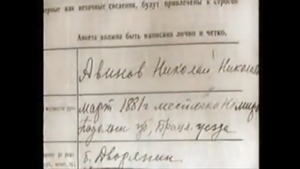 ерные или неточные сведения, будут привлечены к строгой
Анкета должна быть написана лично и четко.
Авинов Николай Николае
март 1881 г местечко Немир
Подольск. губ., Брацл. уезда
б. Дворянин